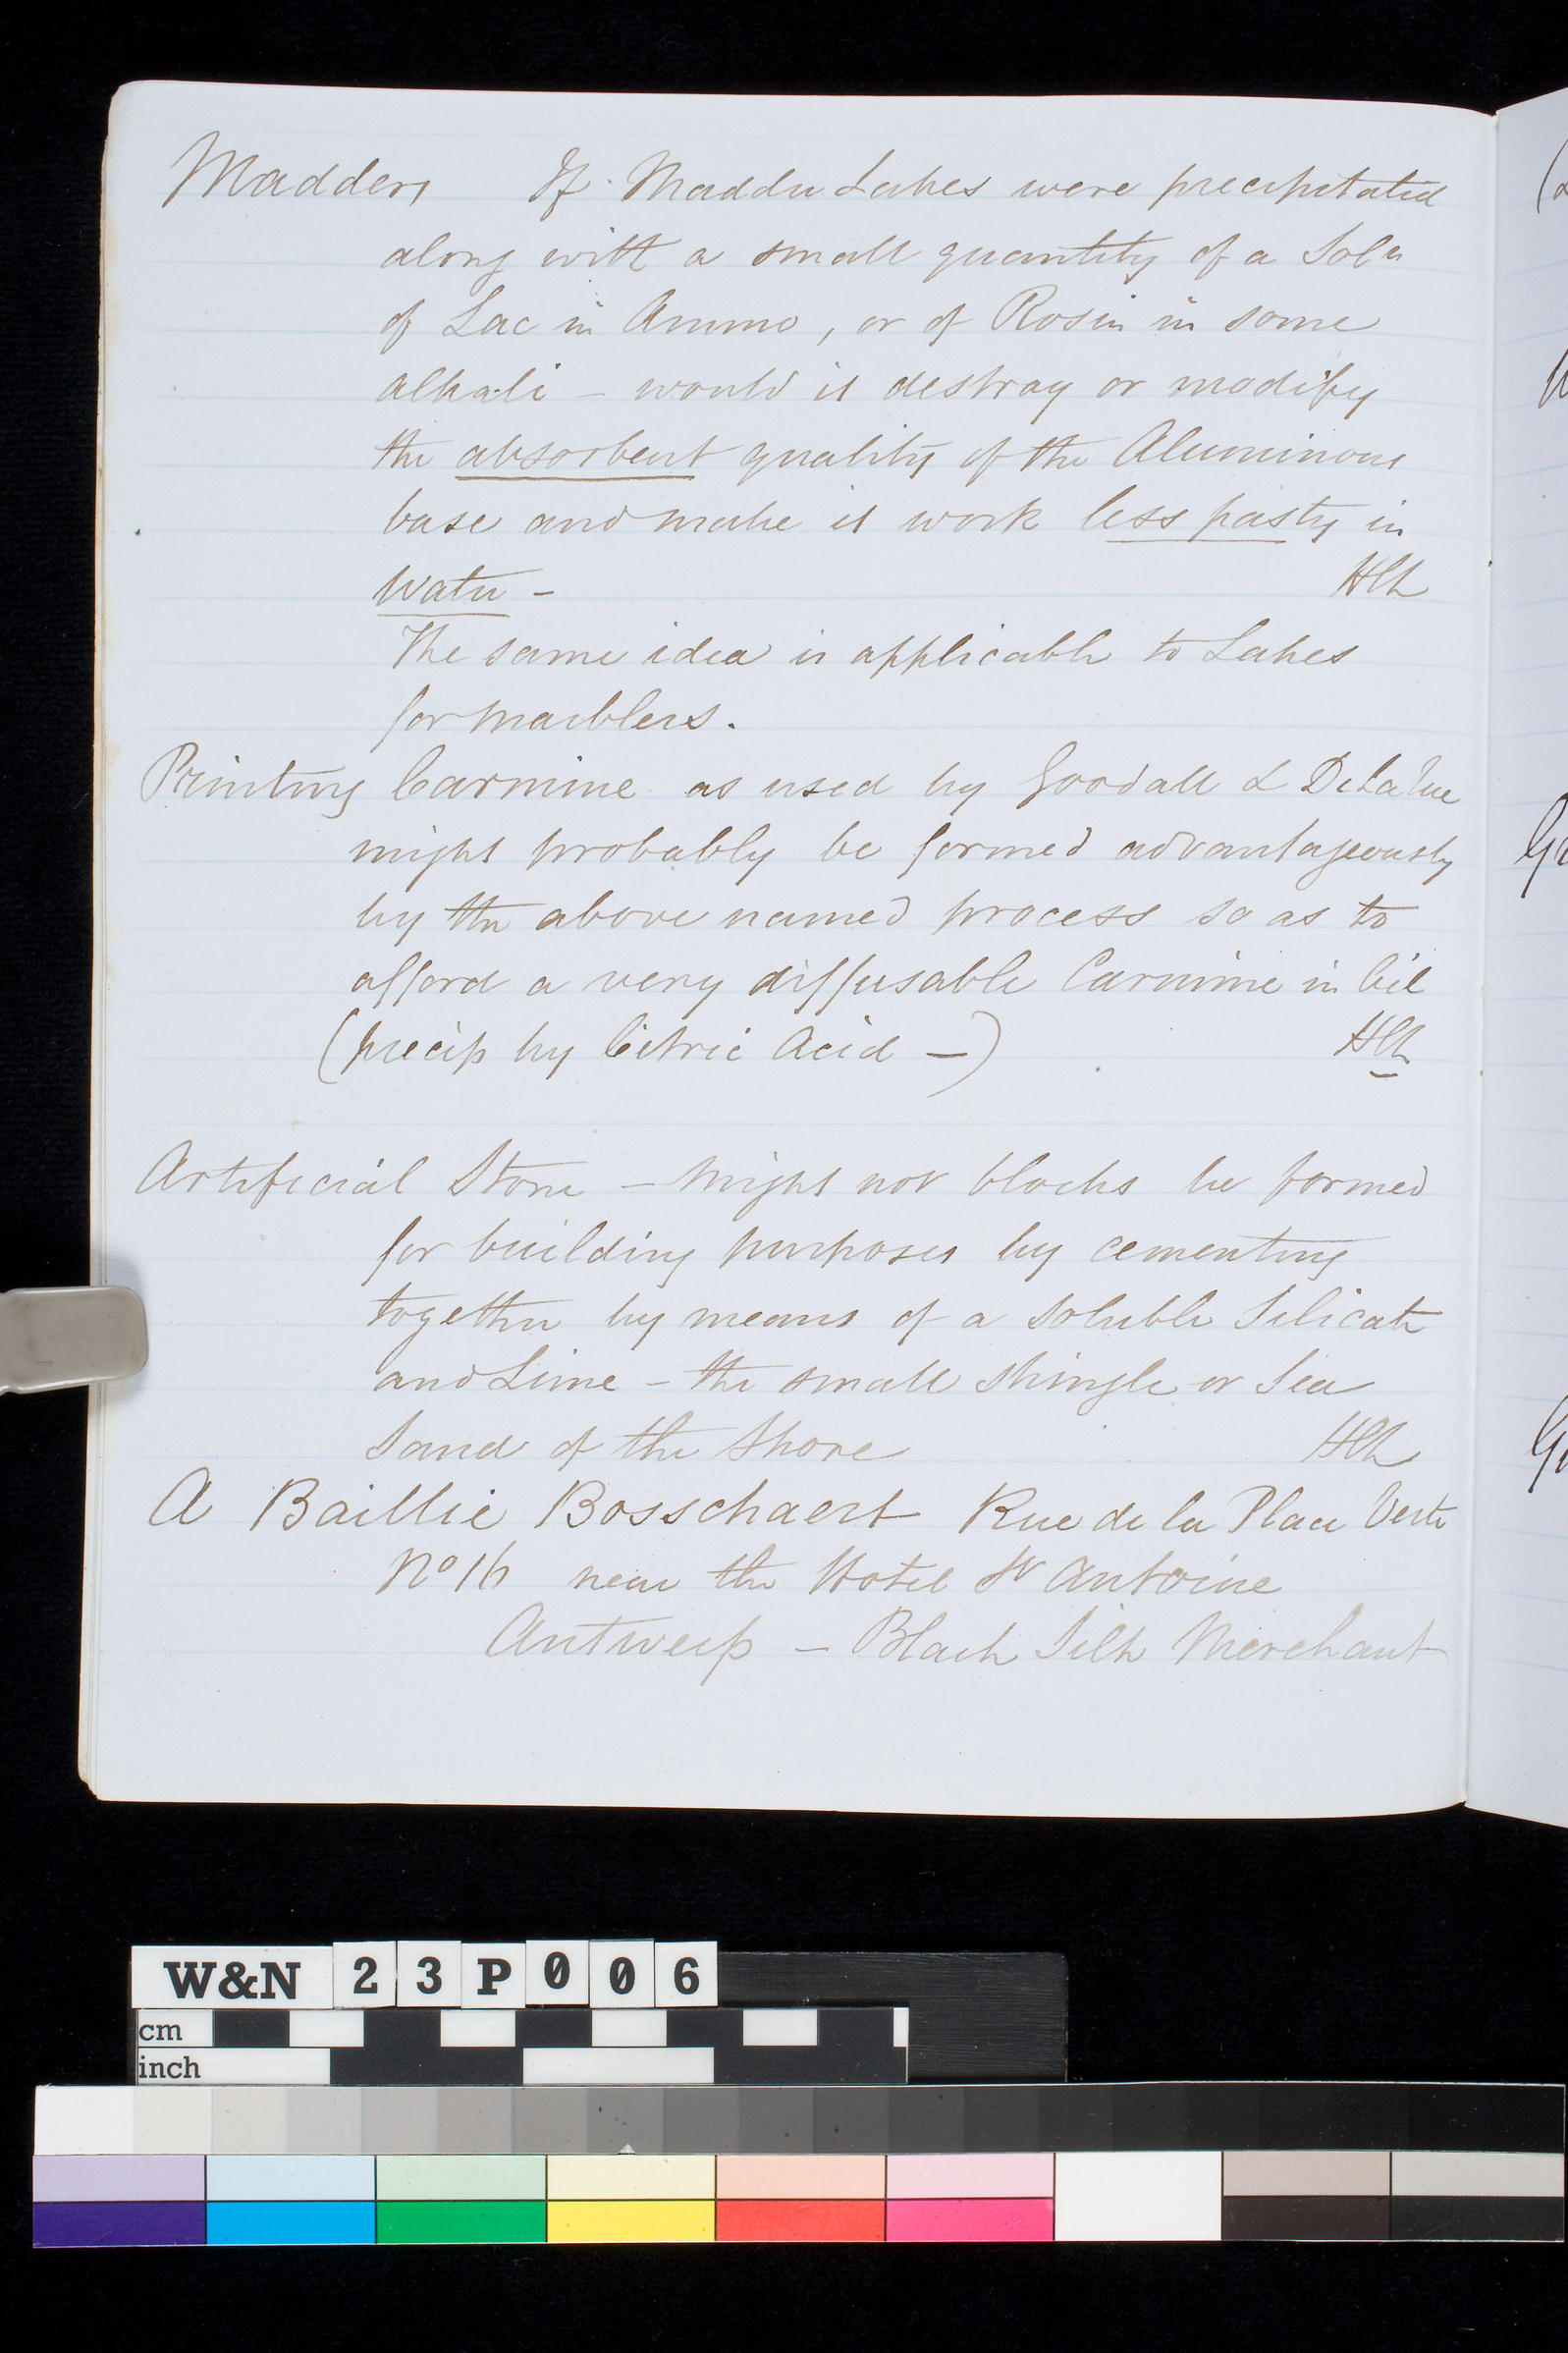 Madders If Madder Lakes were precipitated
along with a small quantity of a Soln
of Lac in Ammo, or of Rosin in some
alkali – would it destroy or modify
the absorbent quality of the Aluminous
base and make it work less pasty in
Water – HCN
The same idea is applicable to Lakes
for marblers.
Printing Carmine as used by Goodall & De La Rue
might probably be formed advantageously
by the above named process so as to
afford a very diffusable Carmine in Oil
(precip by Citric Acid –)
Artificial Stone – Might not blocks be formed
for building purposes by cementing
together by means of a soluble Silicate
and Lime – the small shingle or Sea
Sand of the Shore
A Baillie Bosschaert Rue de la Place Verte
No 16 near the Hotel St Antoine
Antwerp – Black Silk Merchant
W&N 23P006
cm
inch